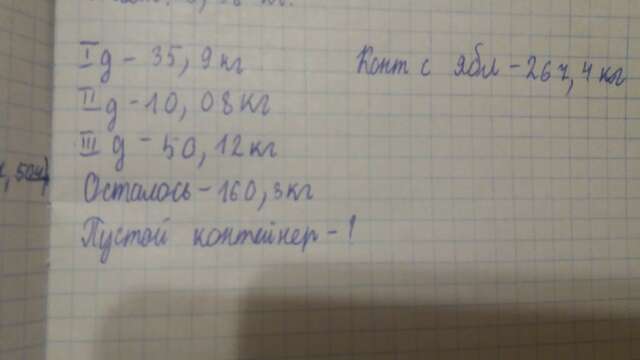 I д - 35, 9 кг
Конт с ябл - 267, 4 кг
II д - 10, 08 кг
III д - 50, 12 кг
Осталось - 160, 3 кг
Пустой контейнер - !